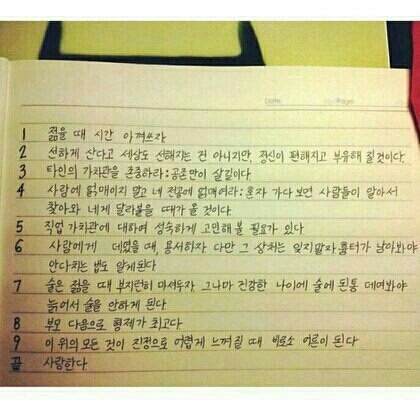 Date: Page
1 젊을 때 시간 아껴쓰자
2 선하게 산다고 세상도 선해지는 건 아니지만, 정신이 편해지고 부유해 질것이다.
3 타인의 가치관을 존중하라; 공존만이 살길이다.
4 사람에 얽매이지 말고 네 전공에 얽매여라; 혼자 가다보면 사람들이 알아서
찾아와 네게 달라붙을 때가 올 것이다.
5 직업 가치관에 대하여 성숙하게 고민해 볼 필요가 있다
6 사람에게 데였을 때, 용서하자 다만 그 상처는 잊지말자 흉터가 남아봐야
안다치는 법도 알게된다
7 술은 젊을 때 부지런히 마셔두자. 그나마 건강한 나이에 술에 된통 데여봐야
늙어서 술을 안하게 된다.
8 부모 다음으로 형제가 최고다
9 이 위의 모든 것이 진정으로 어렵게 느껴질 때 비로소 어른이 된다
끝 사랑한다.